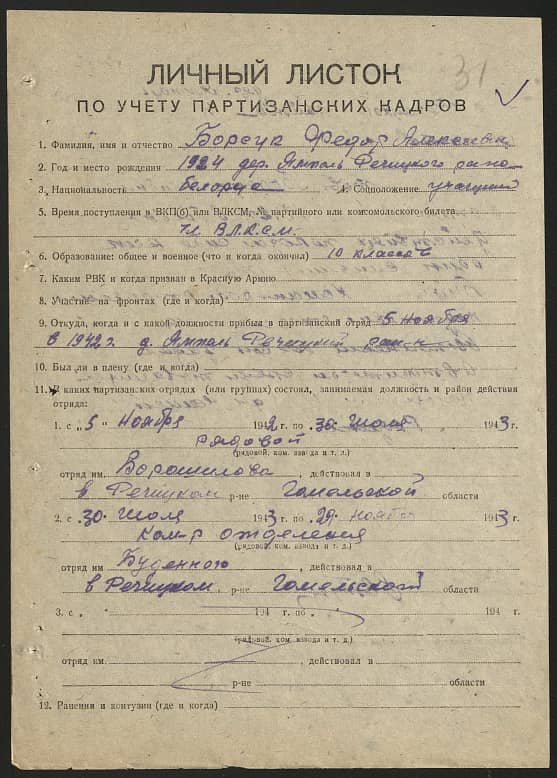 31
ЛИЧНЫЙ ЛИСТОК
ПО УЧЕТУ ПАРТИЗАНСКИХ КАДРОВ
1. Фамилия, имя и отчество Борсук Федор Алексеевич
2. Год и место рождения 1924 дер. Ямполь Речицкого района
3. Национальность белорус 4. Соцположение учащийся
5. Время поступления в ВКП(б) или ВЛКСМ, № партийного или комсомольского билета
чл ВЛКСМ.
6. Образование: общее и военное (что и когда окончил) 10 классов
7. Каким РВК и когда призван в Красную Армию
8. Участие на фронтах (где и когда)
9. Откуда, когда и с какой должности прибыл в партизанский отряд 5 Ноября
в 1942 г. д. Ямполь Речицкий район
10. Был ли в плену (где и когда)
11. В каких партизанских отрядах (или группах) состоял, занимаемая должность и район действия
отряда:
1. с „5" Ноября 1942 г. по 30 Июля 1943 г.
рядовой
(рядовой, ком. взвода и т. д.)
отряд им Ворошилова, действовал в
в Речицком р-не Гомельской области
2. с 30 Июля 1943 г. по 29 Ноября 1943 г.
Ком-р отделения
(рядовой, ком. взвода и т. д.)
отряд им Буденного действовал в
в Речицком, р-не Гомельской области
3. с 194 г. по 194 г.
(рядовой, ком. взвода и т. д.)
отряд им. действовал в
р-не области
12. Ранения и контузии (где и когда)